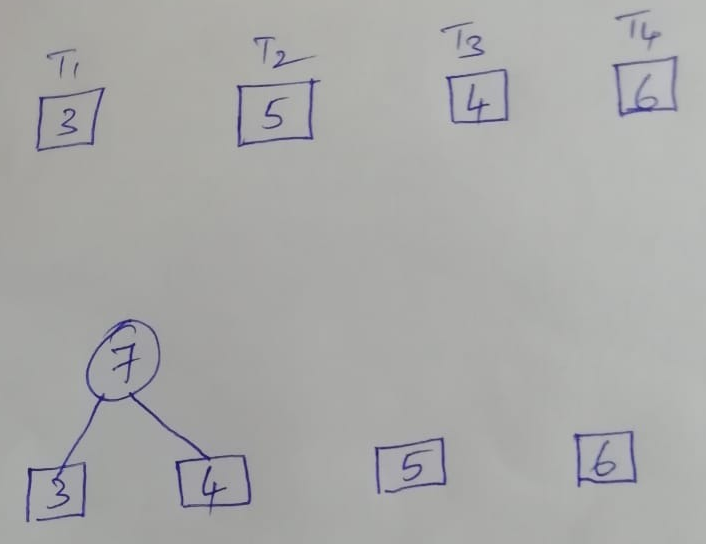 T1 T2 T3 T4
3 5 4 6
7
3 4 5 6